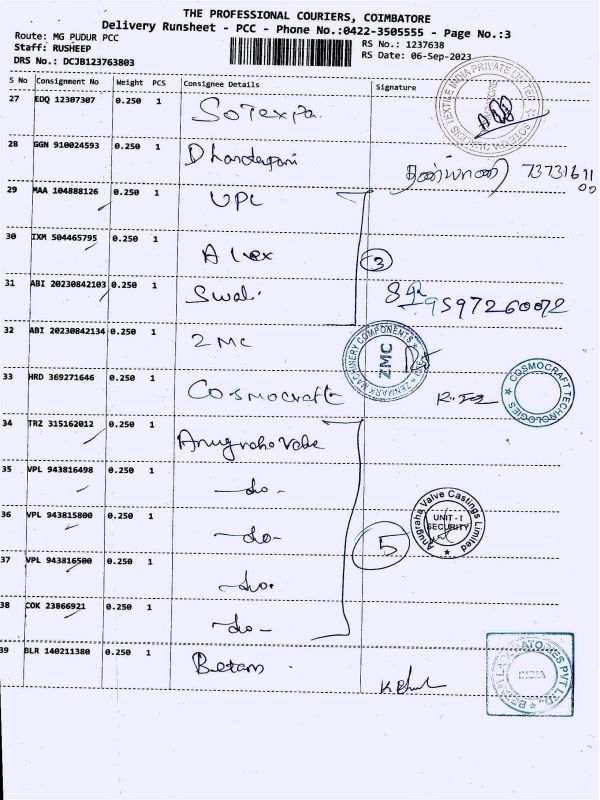 THE PROFESSIONAL COURIERS, COIMBATORE
Delivery Runsheet - PCC - Phone No.:0422-3505555 - Page No.:3
Route: MG PUDUR PCC
RS No.: 1237638
Staff: RUSHEEP
RS Date: 06-Sep-2023
DRS No.: DCJB123763803
S No Consignment No Weight PCS Consignee Details Signature
27 EDQ 12307307 0.250 1 Sotexpa
28 GGN 910024593 0.250 1 Dhandapani 7373161100
29 MAA 104888126 0.250 1 UPL
30 IXM 504465795 0.250 1 Alex 3
31 ABI 20230842103 0.250 1 Swati 9597260072
32 ABI 20230842134 0.250 1 ZMC
ZENMARK MACHINERY COMPONENTS
ZMC
33 HRD 369271646 0.250 1 Cosmocraft
COSMOCRAFT TECHNOLOGIES
34 TRZ 315162012 0.250 1 Anugraha Valve
35 VPL 943816498 0.250 1 -do-
36 VPL 943815800 0.250 1 -do- 5
Anugraha Valve Castings Limited
UNIT - I
SECURITY
37 VPL 943816500 0.250 1 -do-
38 COK 23866921 0.250 1 -do-
39 BLR 140211380 0.250 1 Betam
INDIA